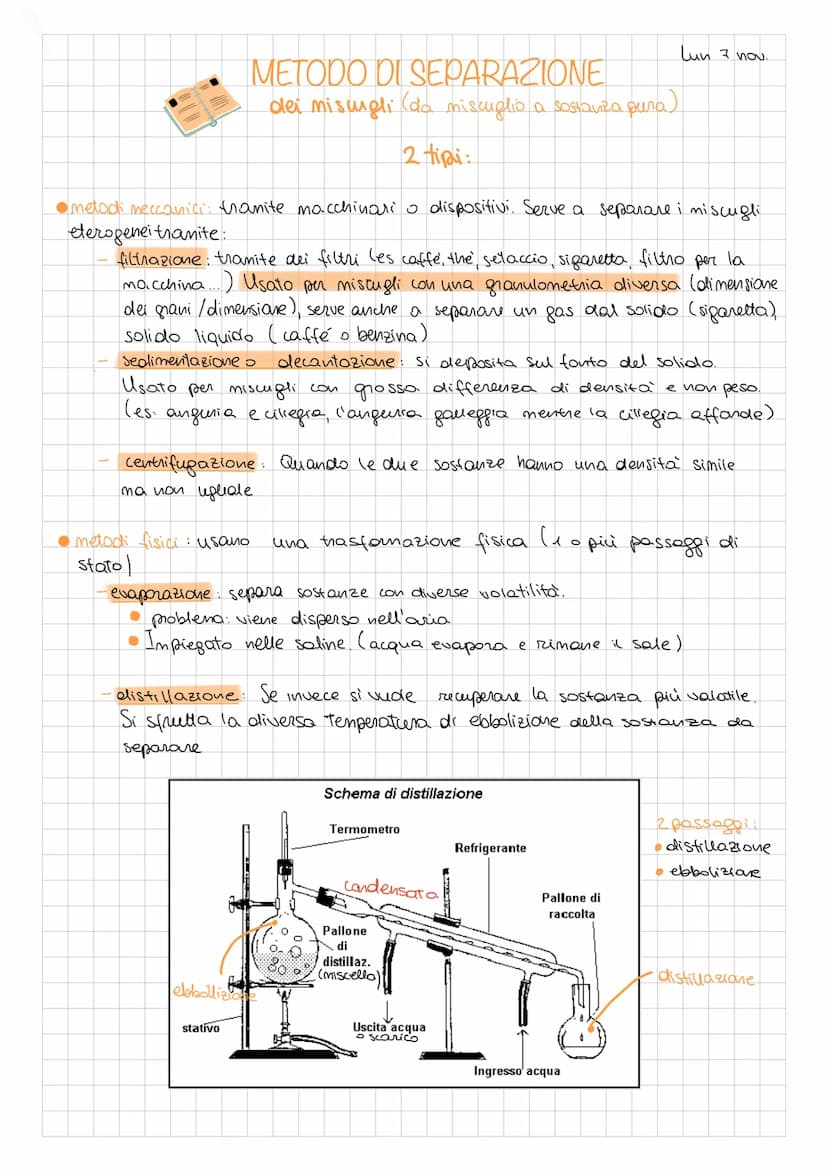 lun 7 nov.
METODO DI SEPARAZIONE
dei miscugli (da miscuglio a sostanza pura)
2 tipi:
metodi meccanici: tramite macchinari o dispositivi. Serve a separare i miscugli
eterogenei tramite:
- filtrazione: tramite dei filtri (es caffé, thè, setaccio, sigaretta, filtro per la
macchina...) Usato per miscugli con una granulometria diversa (dimensione
dei grani / dimensione), serve anche a separare un gas dal solido (sigaretta),
solido liquido (caffé o benzina)
- sedimentazione o decantazione: si deposita sul fonto del solido.
Usato per miscugli con grossa differenza di densità e non peso.
(es: anguria e ciliegia, l'anguria galleggia mentre la ciliegia affonde)
- centrifugazione: Quando le due sostanze hanno una densità simile
ma non uguale
metodi fisici: usano una trasformazione fisica (1 o più passaggi di
stato)
- evaporazione: separa sostanze con diverse volatilità.
problema: viene disperso nell'aria
Impiegato nelle saline. (acqua evapora e rimane il sale)
- distillazione: Se invece si vuole recuperare la sostanza più volatile.
Si sfrutta la diversa temperatura di ebbolizione della sostanza da
separare
Schema di distillazione
Termometro
Refrigerante
condensata
Pallone di
raccolta
Pallone
di
distillaz.
(miscella)
ebbollizione
stativo
Uscita acqua
o scarico
Ingresso acqua
2 passaggi:
distillazione
ebbolizione
distillazione